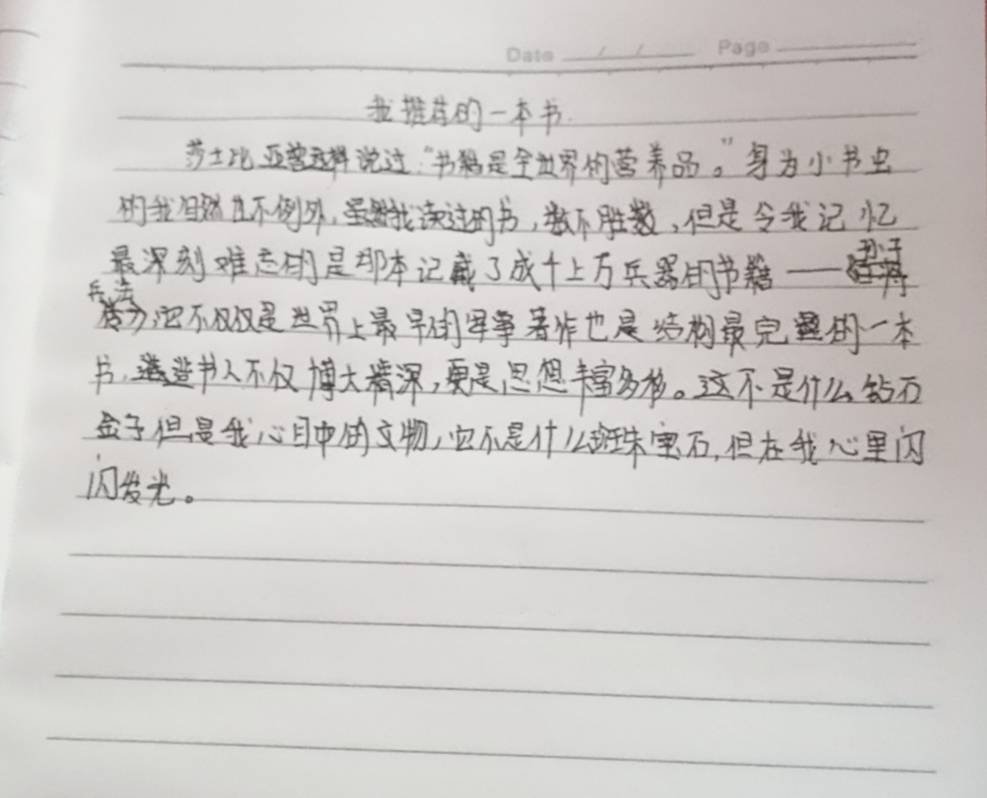 Date / / Page
我推荐的一本书
莎士比亚曾这样说过:"书籍是全世界的营养品。"身为小书虫
的我自然也不例外,虽然我读过的书,数不胜数,但是令我记忆
最深刻难忘的是那本记载了成千上万兵器的书籍——孙子
兵法
它不仅仅是世界上最早的军事著作也是结构最完整的一本
书,造书人不仅博大精深,更是思想丰富多彩。这不是什么钻石
金子但是我心目中的文物,它不是什么斑珠宝石,但在我心里闪
闪发光。